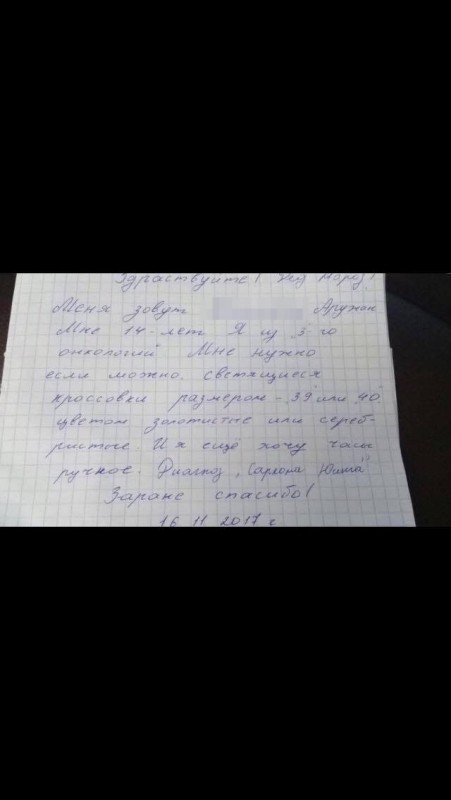 Здраствуйте! Дед Мороз!
Меня зовут Аружан
Мне 14-лет Я из 3-го
онкологий Мне нужно
если можно. светящиеся
кроссовки размером - 39 или 40
цветом золотистые или сереб-
ристые. И я ещё хочу часы
ручное. Диагноз "Саркома Юинга"
Заране спасибо!
16 11 2017 г